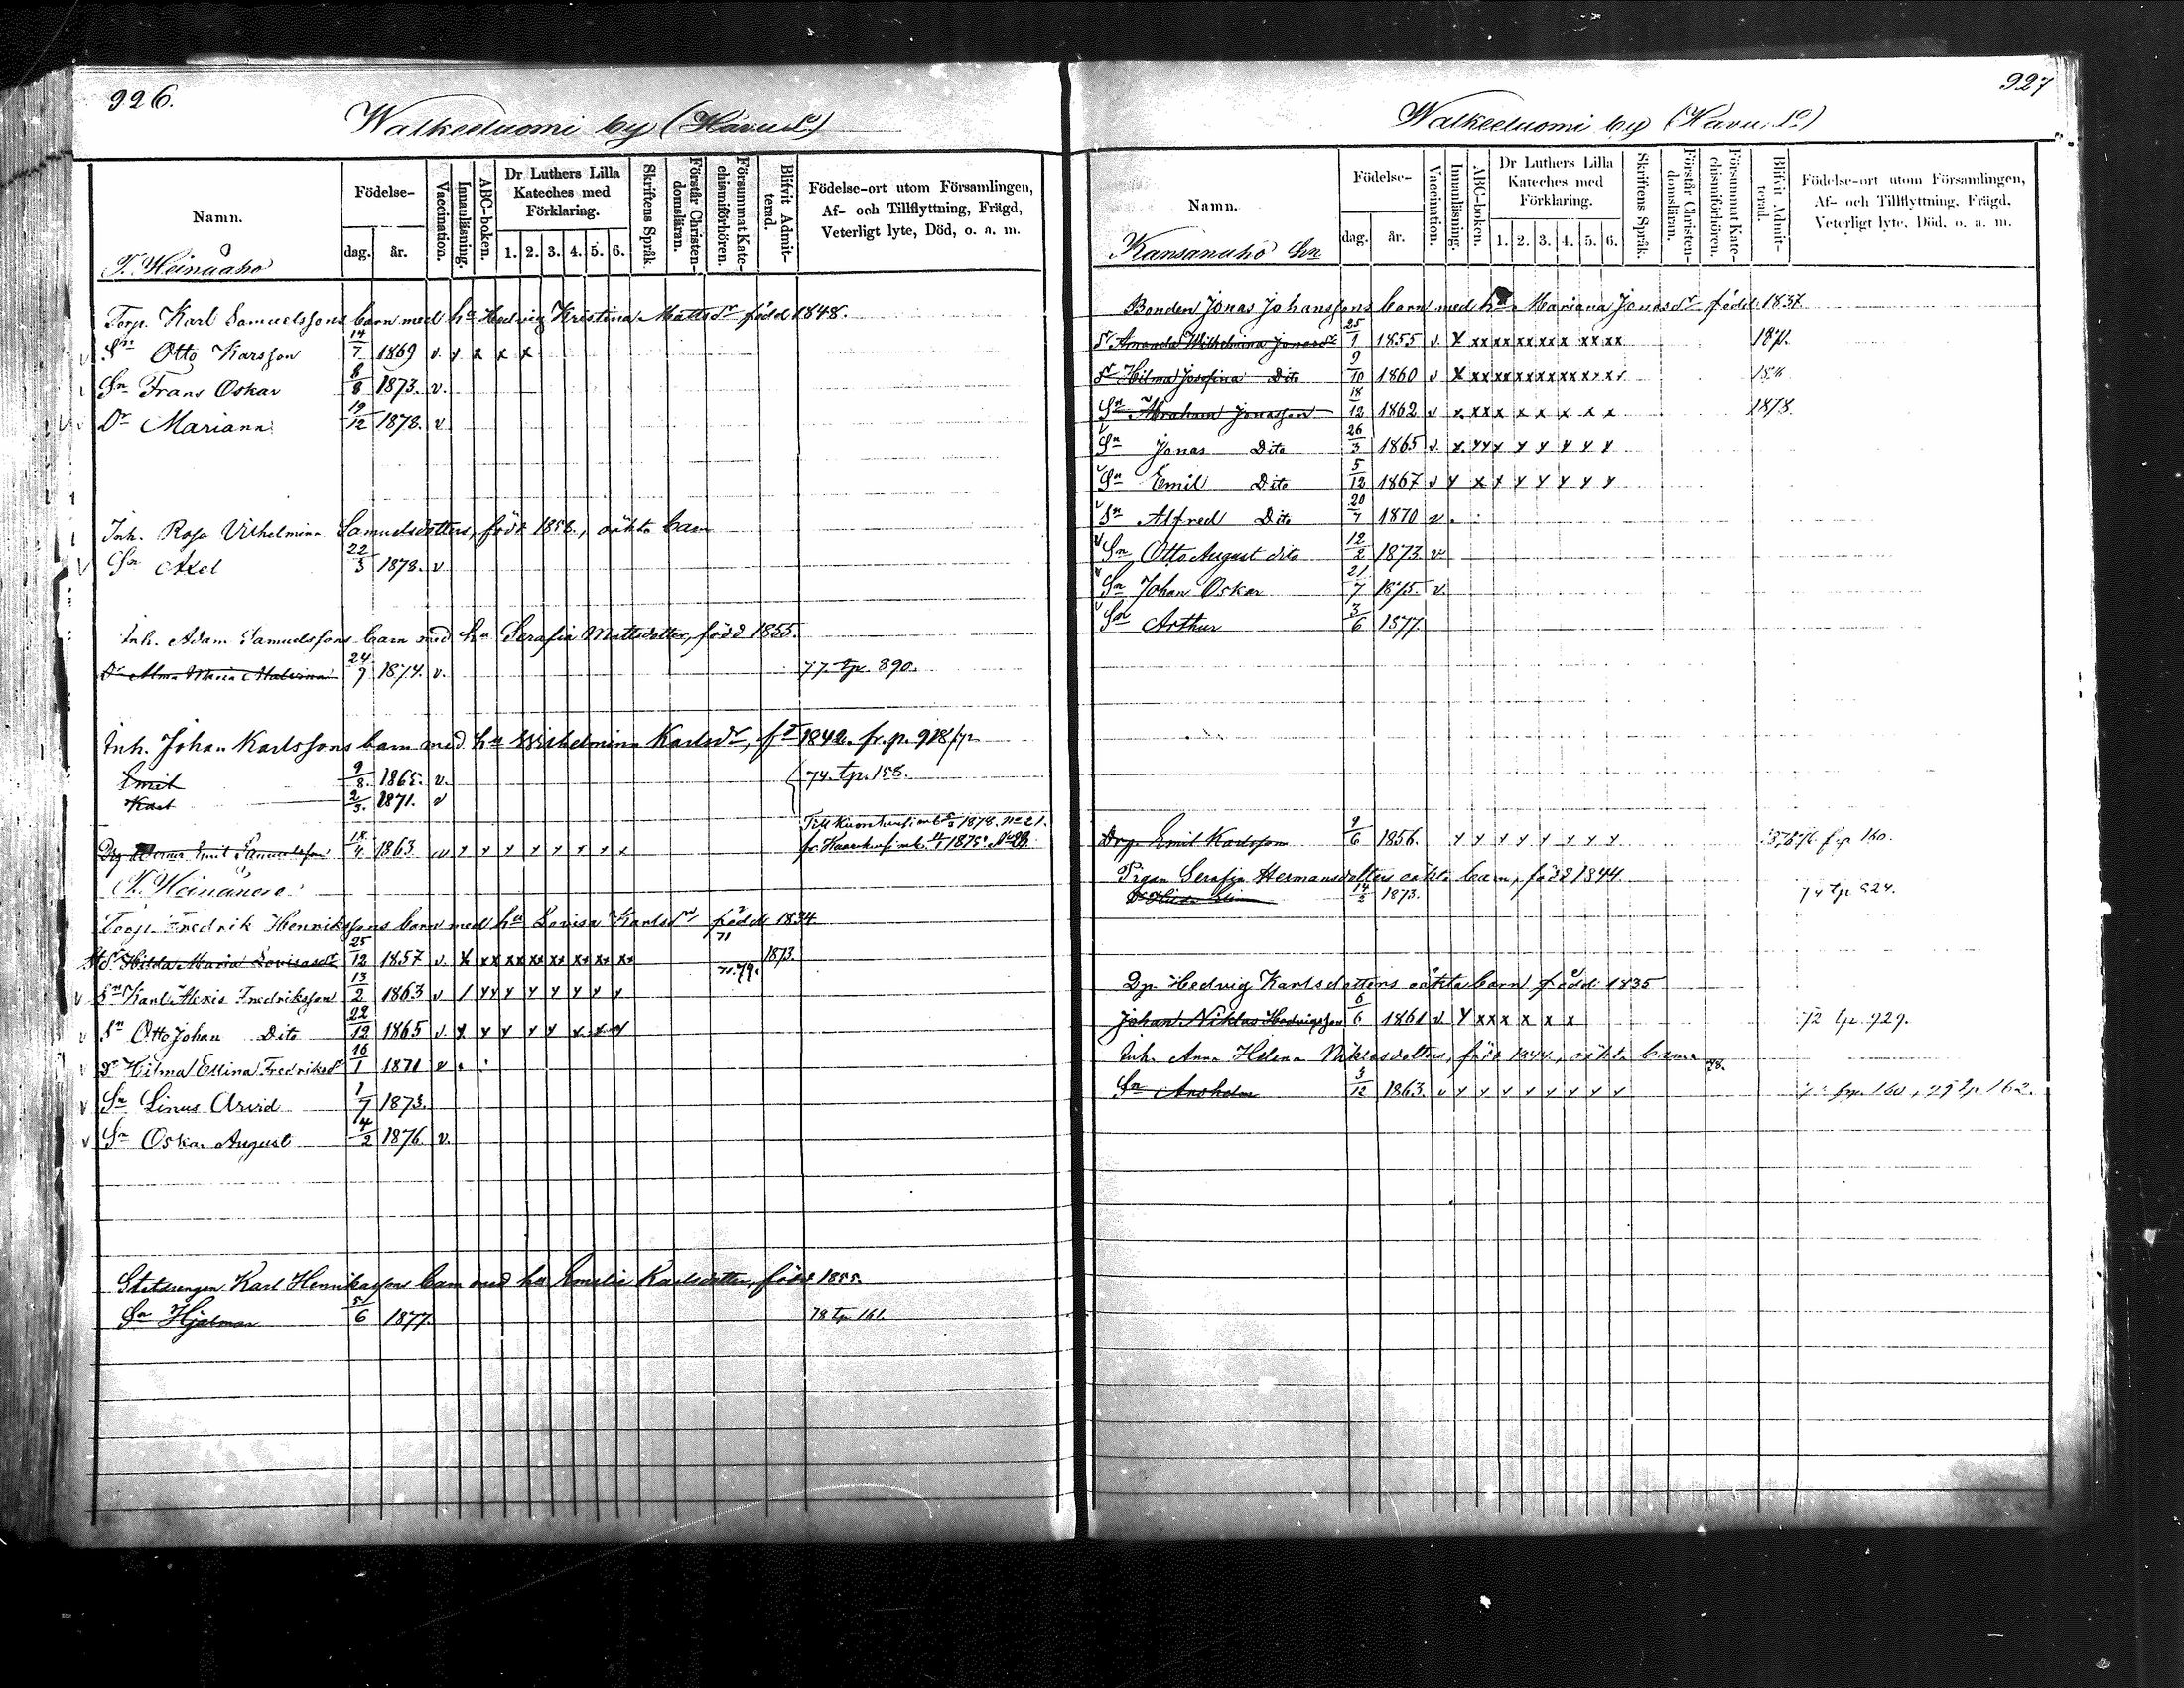 926.
Walkeeluomi by (Havu Ln)
Namn.
Födelse-
dag.
år.
Vaccination.
Innanläsning.
ABC-boken.
Dr Luthers Lilla Kateches med Förklaring.
1. 2. 3. 4. 5. 6.
Skriftens Språk.
Förstår Christendomsläran.
Försummat Katechismiförhören.
Blifvit Admitterad.
Födelse-ort utom Församlingen, Af- och Tillflyttning, Frägd, Veterligt lyte, Död, o. a. m.
T. Heinuaho
Torp. Karl Samuelssons barn med hu Hedvig Kristina Mattsdr född 1848.
v Sn Otto Karsson 14/7 1869 v. y x x x
Sn Frans Oskar 8/8 1873. v.
Dr Mariana 19/12 1878. v
Inh. Rosa Vilhelmina Samuelsdotters, född 1858, oäkta barn
v Sn Axel 22/3 1878. v
Inh. Adam Samuelssons barn med hu Serafia Mattsdotter, född 1855.
Dr Alma Maria Malvina 24/9 1874. v. 77. tp. 890.
Inh. Johan Karlssons barn med hu Wilhelmina Karlsdr, fd 1842. fr. p. 918/
Emil 9/8. 1865. v. 74. tp. 158.
Karl 2/3. 1871. v
Till 1878. no 21.
Drg Verner Emil Samuelsson 18/4 1863 v y y y y y y y y fr. 1875
T. Heinänen
Torp. Fredrik Henrikssons barn med hu Lovisa Karlsdr född 1834.
71
Dr Hilda Maria Lovisasdr 25/12 1857 v. x xx xx xx xx xx xx 1873
71. 79.
v Sn Karl Alexis Fredriksson 13/2 1863 v / yy y y y y y y
v Sn Otto Johan Dito 22/12 1865 v. x y y y y x x y
v Dr Hilma Elina Fredriksdr 16/1 1871 v .
v Sn Linus Arvid 1/7 1873.
v Sn Oskar August 4/2 1876 v.
Karl Henrikssons barn med hu Emelie Karlsdotter, född 1855.
Sn Hjalmar 5/6 1877. 78 tp 161.
927
Walkeeluomi by (Havu Ln)
Namn.
Födelse-
dag.
år.
Vaccination.
Innanläsning.
ABC-boken.
Dr Luthers Lilla Kateches med Förklaring.
1. 2. 3. 4. 5. 6.
Skriftens Språk.
Förstår Christendomsläran.
Försummat Katechismiförhören.
Blifvit Admitterad.
Födelse-ort utom Församlingen, Af- och Tillflyttning, Frägd, Veterligt lyte, Död, o. a. m.
Kansanaho
Bonden Jonas Johanssons barn med hu Mariana Jonasdr född 1837.
Dr Amanda Wilhelmina Jonasdr 25/1 1855 v. x xx xx xx xx x xx xx 1871.
Dr Hilma Josefina Dito 9/10 1860 v x xx xx xx xx xx x x x
Sn Abraham Jonasson 18/12 1862 v x xx x x x x x x 1878.
Sn Jonas Dito 26/3 1865 v. x. yy y y y y y y
v Sn Emil Dito 5/12 1867 v y x x y y y y y
v Sn Alfred Dito 20/7 1870 v .
v Sn Otto August dito 12/2 1873 v
v Sn Johan Oskar 21/7 1875. v.
v Sn Arthur 3/6 1877.
Drg. Emil Karlsson 9/6 1856. y y y y y y y y
Pigan Serafia Hermansdotters oäkta barn, född 1844.
14/5 1873. 74 tp 924.
Dp. Hedvig Karlsdotters oäkta barn född 1835
Johan Niklas Hedvigsson 6/6 1861 v. y xx x x x x 72 tp. 929.
Inh. Anna Helena Niklasdotters, född 1844, oäkta barn
78.
Sn Anshelm 3/12 1863. v y y y y y y y y frp. 160, 79 tp. 162.